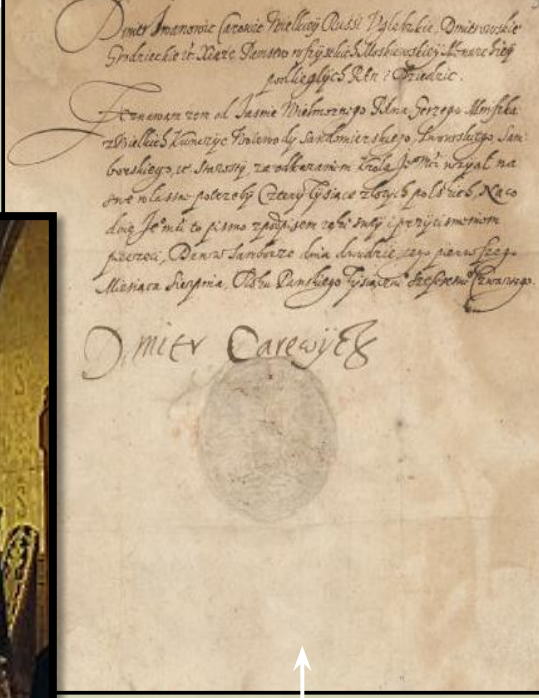 Dmitr Iwanowic Carowic Wielkiey Russi Ugleczkie, Dmitrowskie
Grodzieckie Xiąże Państw wszystkich Moskiewskiey Monarchiey
podległych Pan i Dziedzic.
Zeznawam żem od Jaśnie Wielmożnego Pana Jerzego Mniszka
z Wielkich Kunczyc Woiewody Sandomierskiego, Lwowskiego, Sam-
borskiego, Starosty, za odkazaniem Krola Je Mci wziął na
swe własne potrzeby Cztery tysiące złotych polskich, Na co
daię Je Mci to pismo z podpisem ręki swey i przyciśnieniem
pieczeci, Dan w Samborze dnia dwudziestego pierwszego
Miesiąca Sierpnia, Roku Panskiego Tysiącznego Szesetnego Czwartego.
Dmitr Carewicz